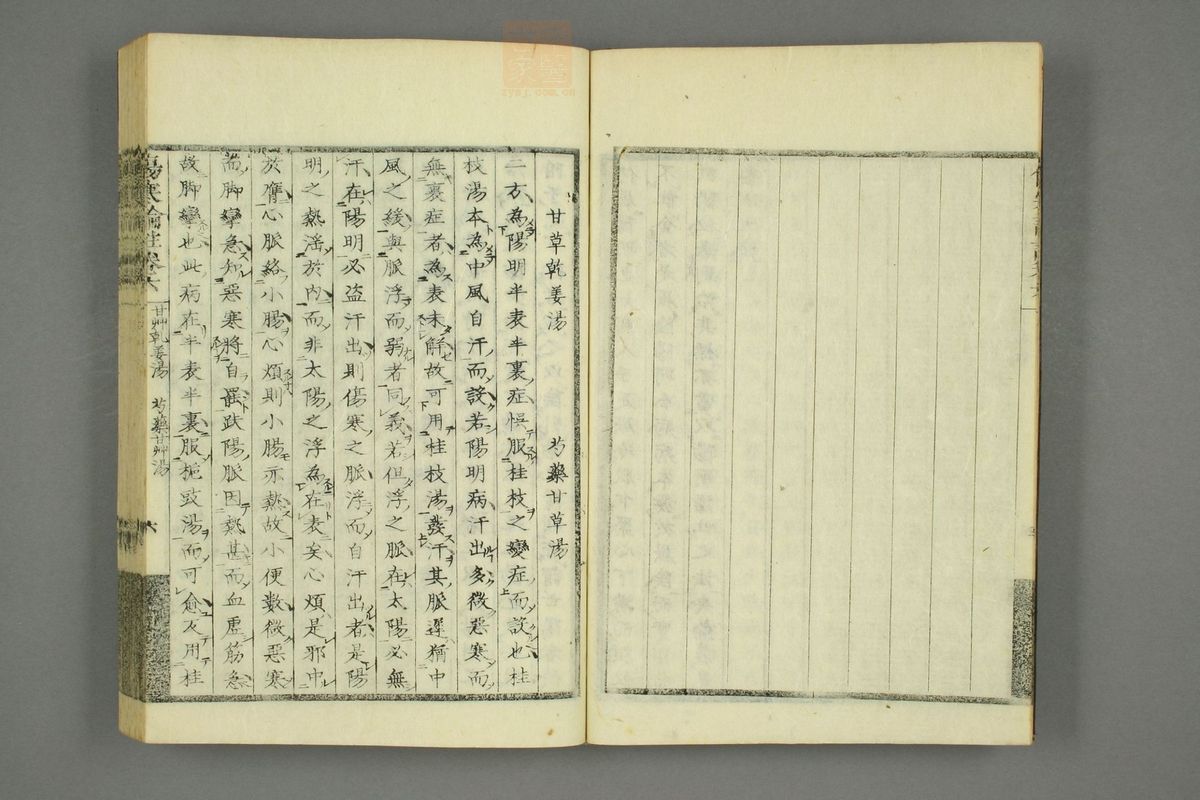 甘草乾姜湯　芍藥甘草湯
二方為陽明半表半裏症悞服桂枝之變症而設也桂
枝湯本為中風自汗而設若陽明病汗出多微惡寒而
無裏症者為表未解故可用桂枝湯發汗其脈遲猶中
風之緩與脈浮而弱者同義若但浮之脈在太陽必無
汗在陽明必盜汗出則傷寒之脈浮而自汗出者是陽
明之熱淫於內而非太陽之浮為在表矣心煩是邪中
於膺心脈絡小腸心煩則小腸亦熱故小便數微惡寒
而脚攣急知惡寒將自罷趺陽脈因熱甚而血虛筋急
故脚攣也此病在半表半裏服梔豉湯而可愈反用桂
傷寒論註卷六
甘艸乾姜湯　芍藥甘艸湯
六
zysj.com.cn